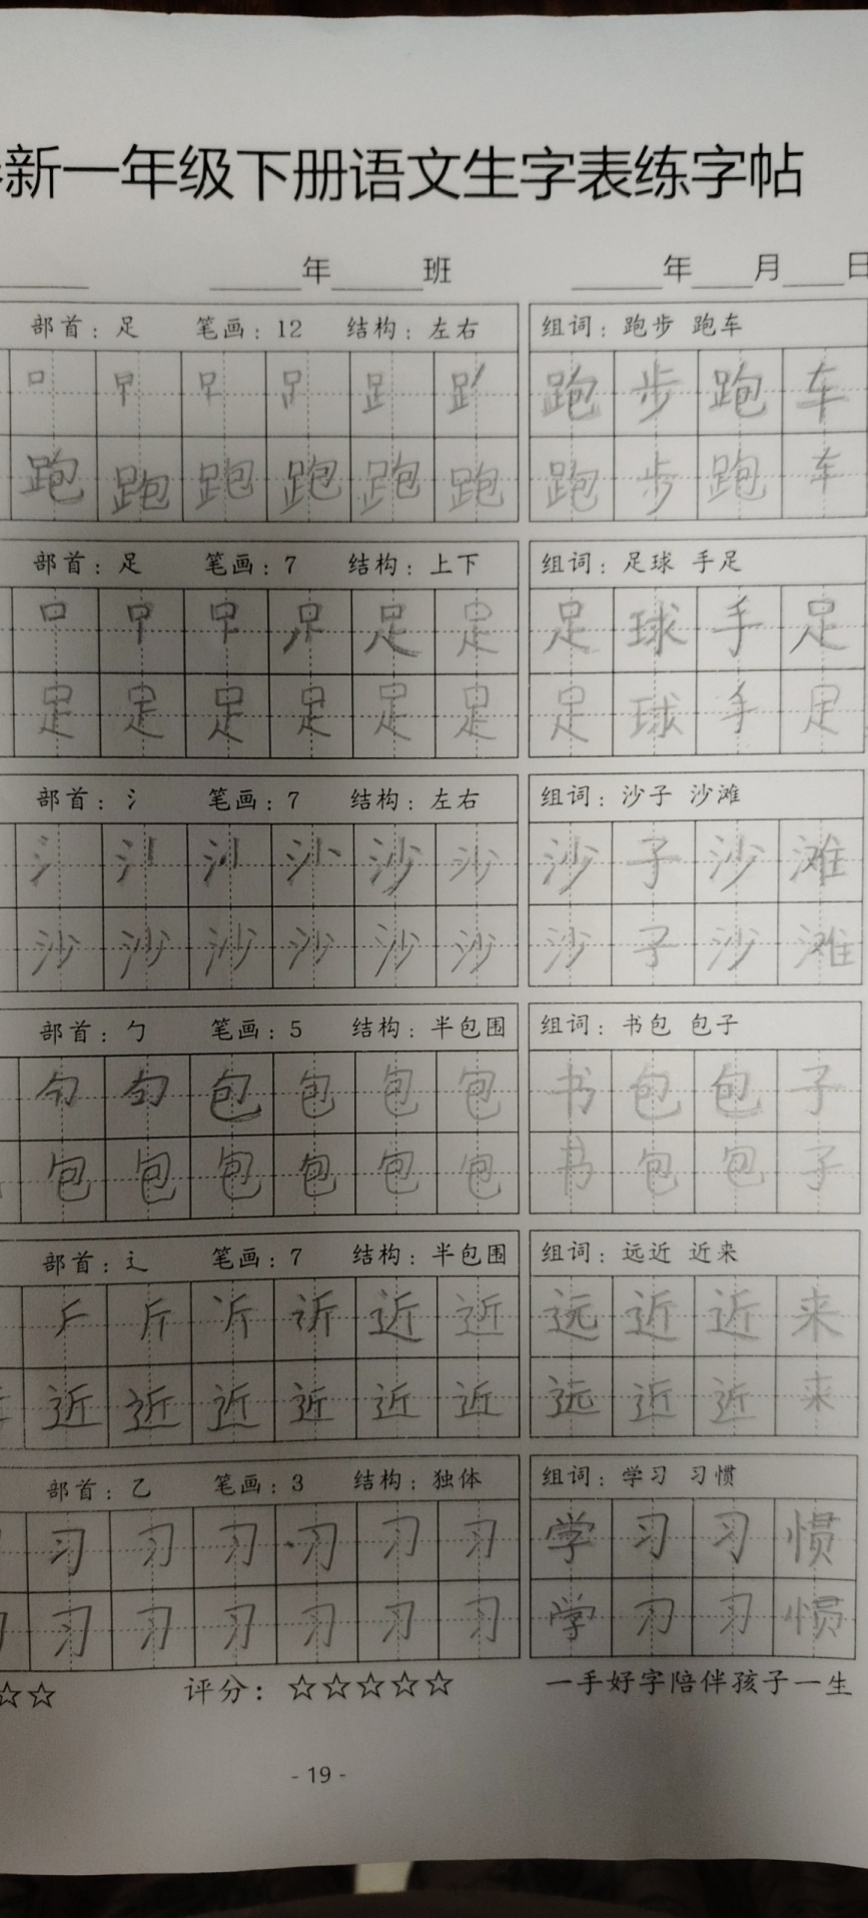 新一年级下册语文生字表练字帖
年 班 年 月 日
部首：足 笔画：12 结构：左右 组词：跑步 跑车
跑 步 跑 车
跑 跑 跑 跑 跑 跑 跑 步 跑 车
部首：足 笔画：7 结构：上下 组词：足球 手足
口 足 足 足 球 手 足
足 足 足 足 足 足 足 球 手 足
部首：氵 笔画：7 结构：左右 组词：沙子 沙滩
氵 沙 沙 沙 子 沙 滩
沙 沙 沙 沙 沙 沙 沙 子 沙 滩
部首：勹 笔画：5 结构：半包围 组词：书包 包子
包 包 包 包 书 包 包 子
包 包 包 包 包 包 书 包 包 子
部首：辶 笔画：7 结构：半包围 组词：远近 近来
斤 近 近 远 近 近 来
近 近 近 近 近 近 远 近 近 来
部首：乙 笔画：3 结构：独体 组词：学习 习惯
习 习 习 习 习 习 学 习 习 惯
习 习 习 习 习 习 学 习 习 惯
☆☆ 评分：☆☆☆☆☆ 一手好字陪伴孩子一生
- 19 -